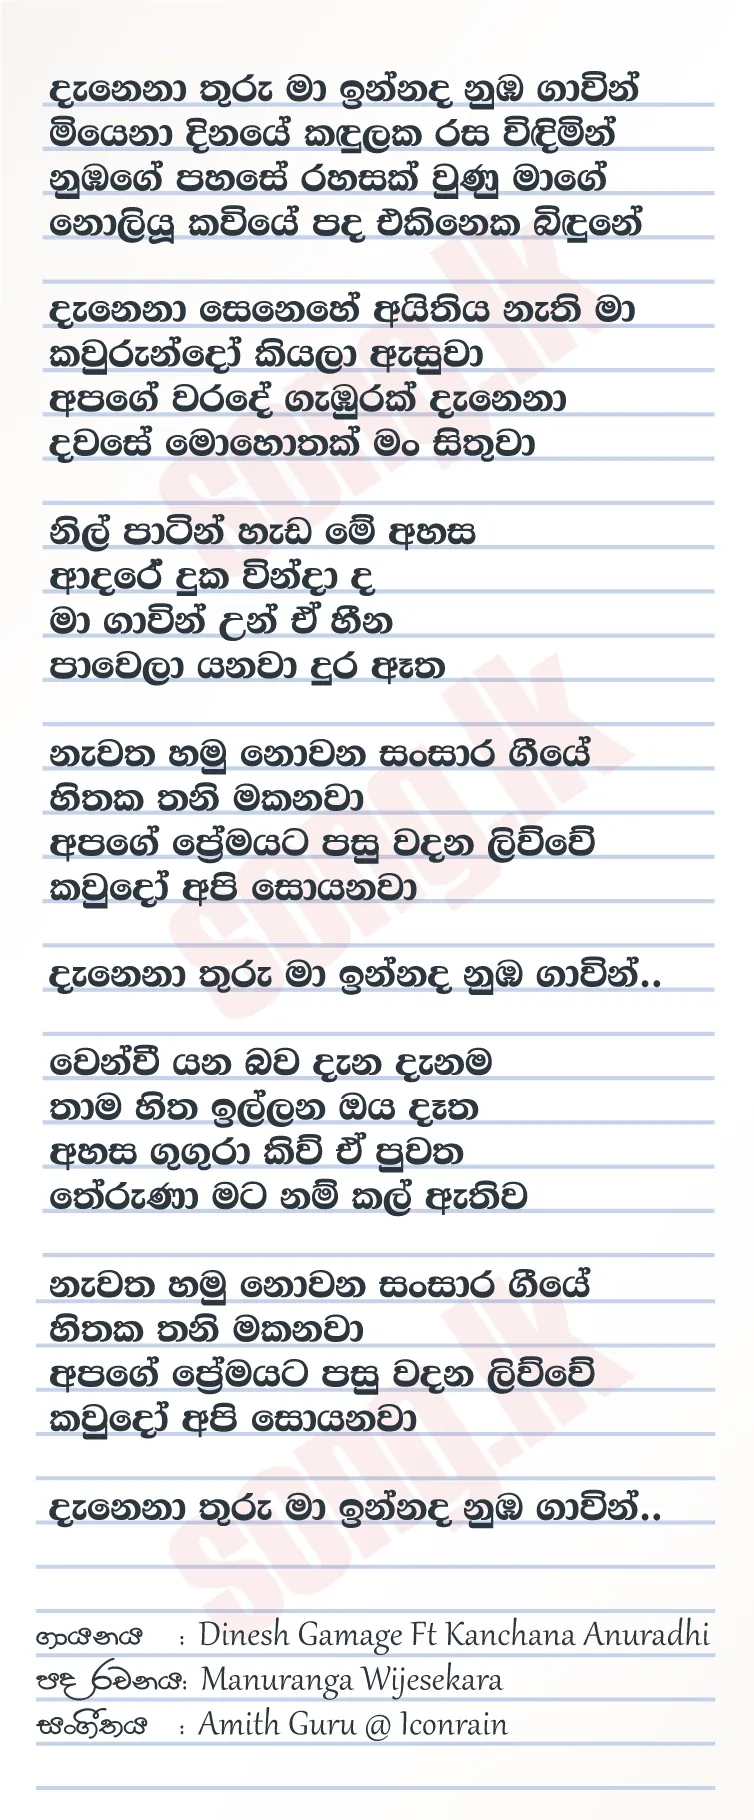 දැනෙනා තුරු මා ඉන්නද නුඹ ගාවින්
මියෙනා දිනයේ කඳුලක රස විඳිමින්
නුඹගේ පහසේ රහසක් වුණු මාගේ
නොලියූ කවියේ පද එකිනෙක බිඳුනේ
දැනෙනා සෙනෙහේ අයිතිය නැති මා
කවුරුන්දෝ කියලා ඇසුවා
අපගේ වරදේ ගැඹුරක් දැනෙනා
දවසේ මොහොතක් මං සිතුවා
නිල් පාටින් හැඩ මේ අහස
ආදරේ දුක වින්දා ද
මා ගාවින් උන් ඒ හීන
පාවෙලා යනවා දුර ඈත
නැවත හමු නොවන සංසාර ගීයේ
හිතක තනි මකනවා
අපගේ ප්‍රේමයට පසු වදන ලිව්වේ
කවුදෝ අපි සොයනවා
දැනෙනා තුරු මා ඉන්නද නුඹ ගාවින්..
වෙන්වී යන බව දැන දැනම
තාම හිත ඉල්ලන ඔය දෑත
අහස ගුගුරා කිව් ඒ පුවත
තේරුණා මට නම් කල් ඇතිව
නැවත හමු නොවන සංසාර ගීයේ
හිතක තනි මකනවා
අපගේ ප්‍රේමයට පසු වදන ලිව්වේ
කවුදෝ අපි සොයනවා
දැනෙනා තුරු මා ඉන්නද නුඹ ගාවින්..
ගායනය : Dinesh Gamage Ft Kanchana Anuradhi
පද රචනය: Manuranga Wijesekara
සංගීතය : Amith Guru @ Iconrain
song.lk
song.lk
song.lk